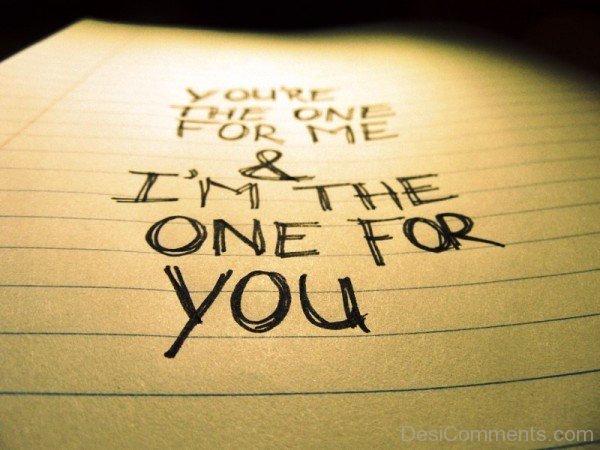 YOU'RE
THE ONE
FOR ME
&
I'M THE
ONE FOR
YOU
DesiComments.com